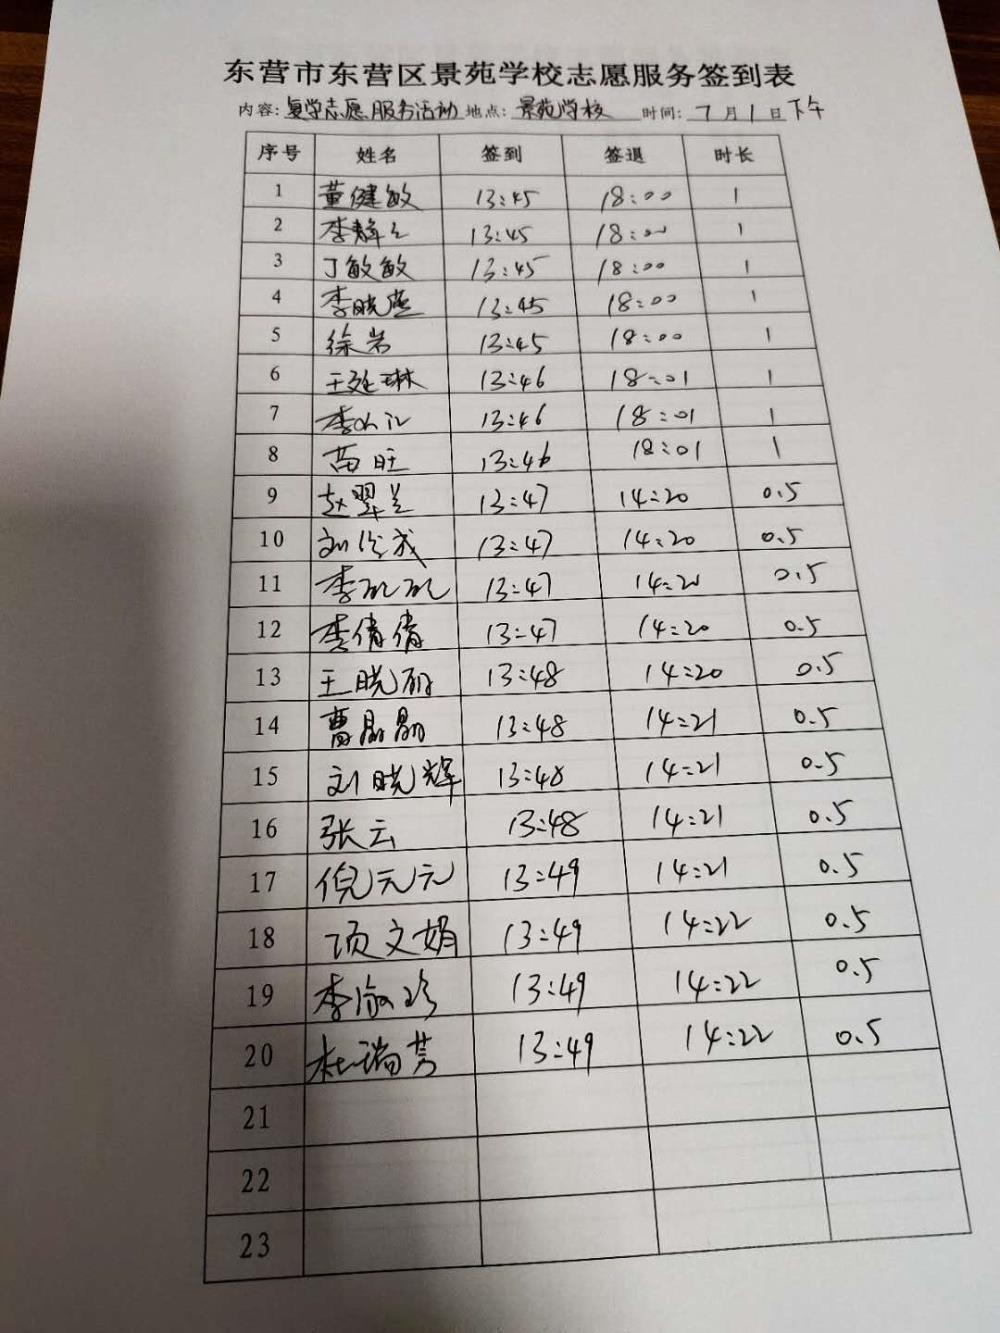 东营市东营区景苑学校志愿服务签到表
内容: 复学志愿服务活动 地点: 景苑学校 时间: 7月1日下午
序号 姓名 签到 签退 时长
1 董健敏 13:45 18:00 1
2 李 13:45 18:00 1
3 丁敏敏 13:45 18:00 1
4 李晓燕 13:45 18:00 1
5 徐岩 13:45 18:00 1
6 王延琳 13:46 18:01 1
7 李 13:46 18:01 1
8 苗旺 13:46 18:01 1
9 赵翠兰 13:47 14:20 0.5
10 刘 13:47 14:20 0.5
11 李 13:47 14:20 0.5
12 李倩倩 13:47 14:20 0.5
13 王晓丽 13:48 14:20 0.5
14 曹晶晶 13:48 14:21 0.5
15 刘晓辉 13:48 14:21 0.5
16 张云 13:48 14:21 0.5
17 倪元元 13:49 14:21 0.5
18 项文娟 13:49 14:22 0.5
19 李淑珍 13:49 14:22 0.5
20 杜瑞芳 13:49 14:22 0.5
21
22
23